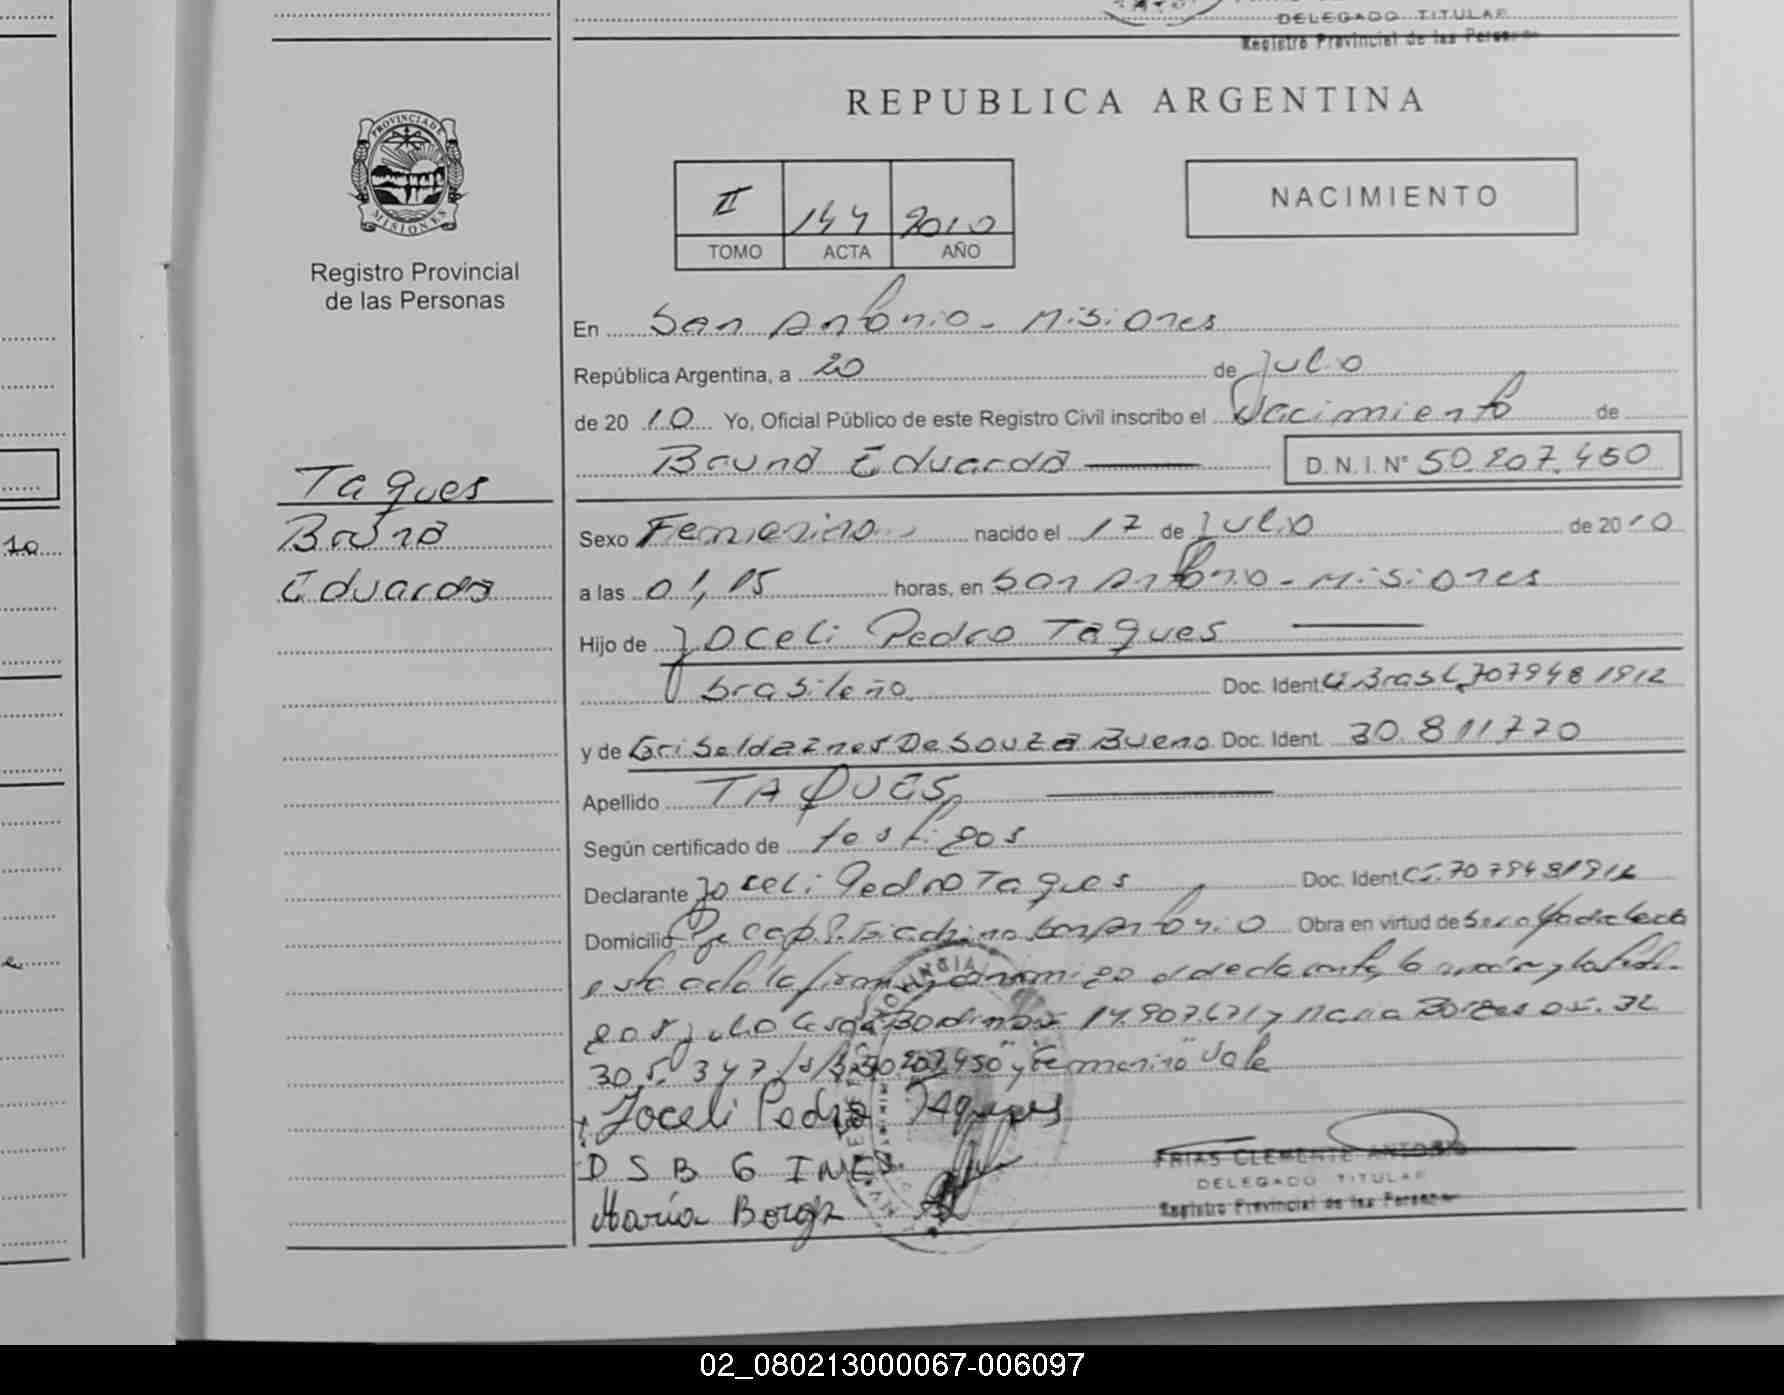 DELEGADO TITULAR
Registro Provincial de las Personas
REPUBLICA ARGENTINA
PROVINCIA DE
MISIONES
II 144 2010
TOMO ACTA AÑO
NACIMIENTO
Registro Provincial
de las Personas
En San Antonio - Misiones
República Argentina, a 20 de Julio
de 20 10 Yo, Oficial Público de este Registro Civil inscribo el Nacimiento de
Eduarda D.N.I. Nº 50.207.450
Taques
Eduarda
10
Sexo Femenino nacido el 17 de Julio de 20 10
a las 01,15 horas, en San Antonio - Misiones
Hijo de Joceli Pedro Taques
brasileño Doc. Ident. 7079481912
y de Griselda Ines De Souza Bueno Doc. Ident. 30.811.770
Apellido TAQUES
Según certificado de testigos
Declarante Joceli Pedro Taques Doc. Ident. CI. 7079481912
Domicilio San Antonio Obra en virtud de
esta acta la firman conmigo el declarante, la
14.907.671 y Maria Borges
30.5.347 50.207.450 y "Femenino" Vale
Joceli Pedro Taques
D S B G INES
María Borge
FRIAS CLEMENTE ANTONIO
DELEGADO TITULAR
Registro Provincial de las Personas
02_080213000067-006097